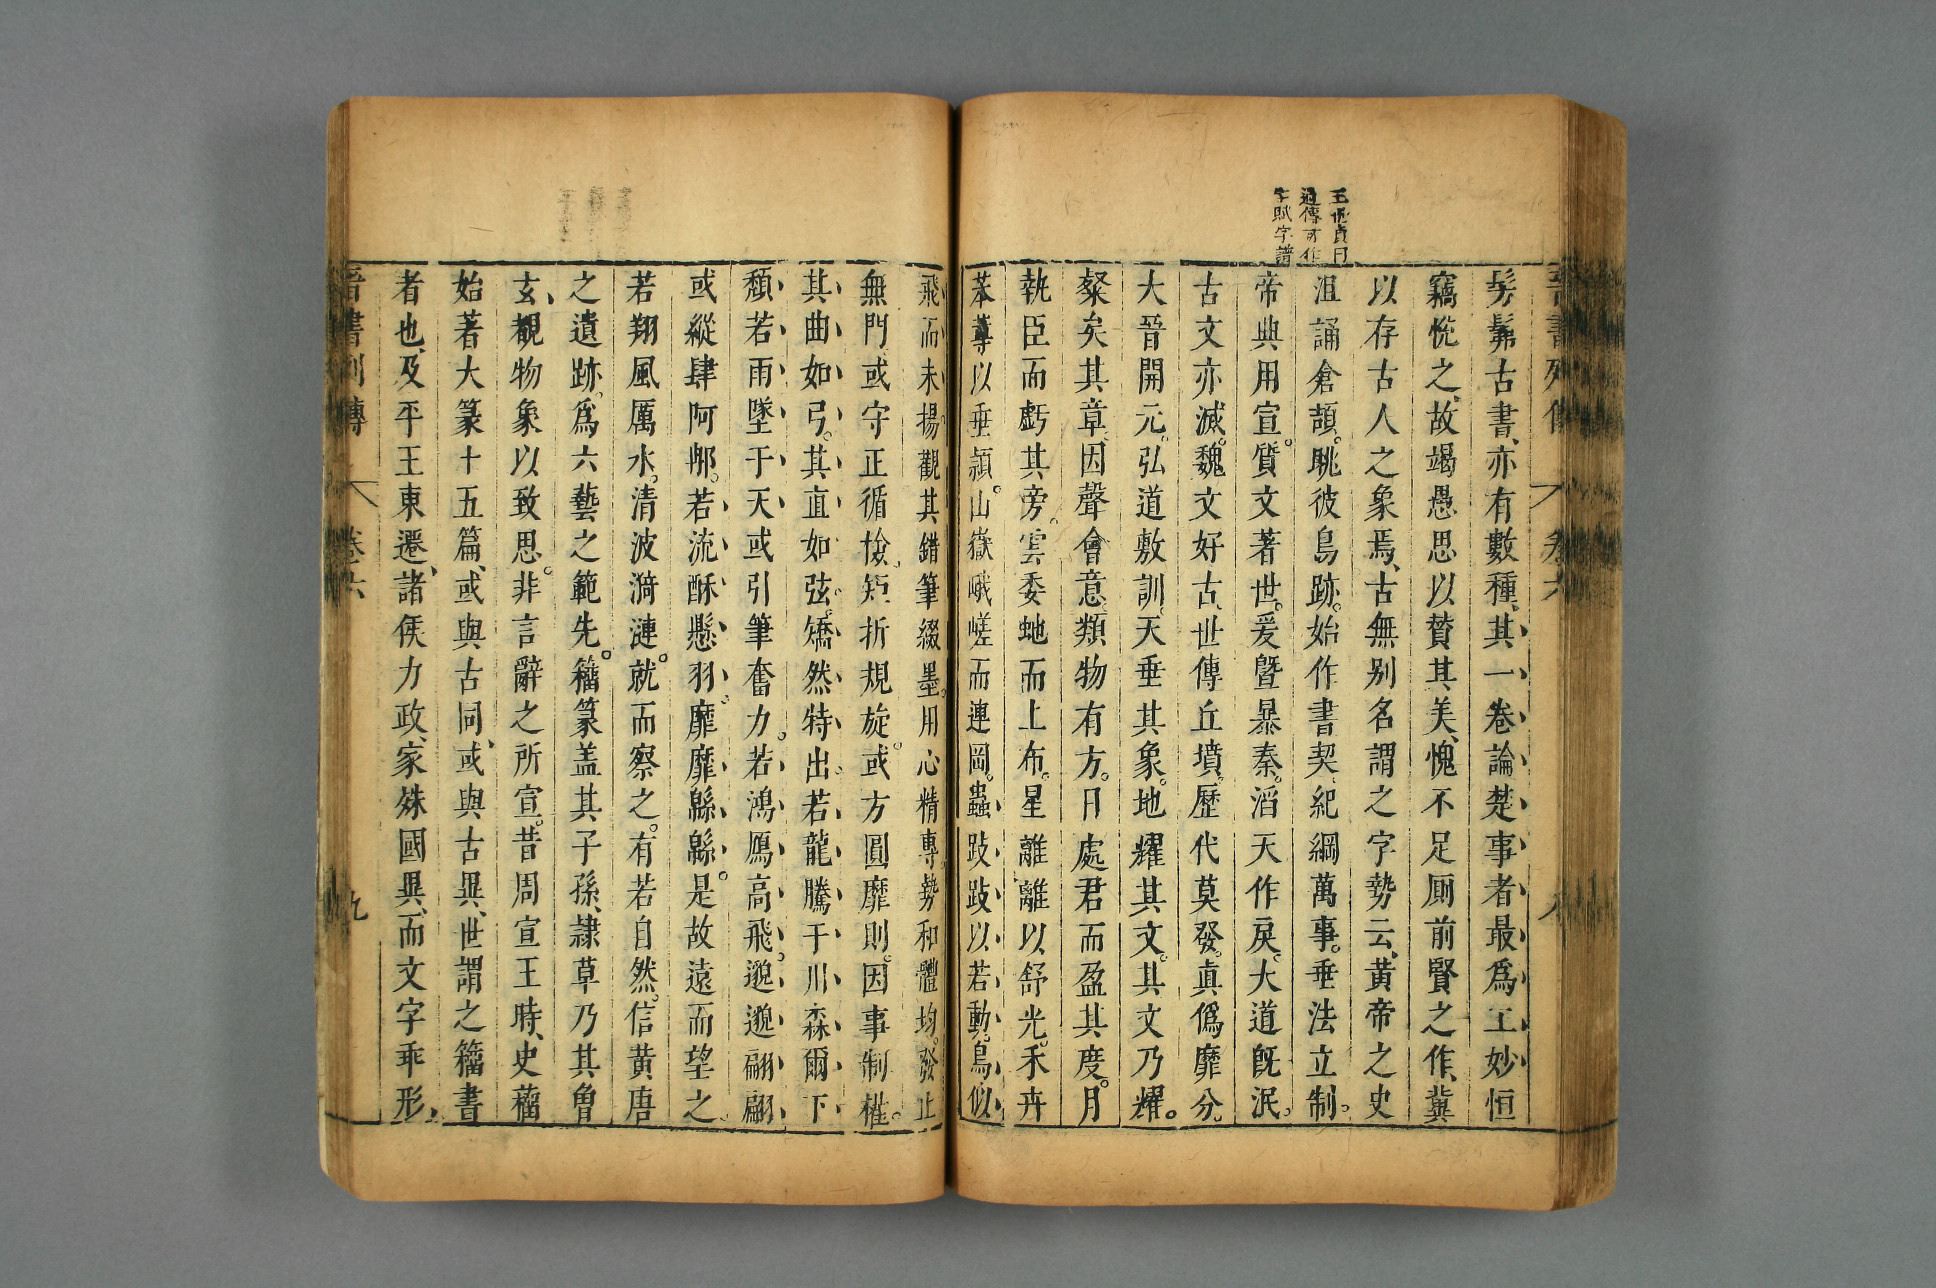 王世貞曰
過傳可作
字賦字譜
晉書列傳 卷六 八
髣髴古書、亦有數種、其一卷論楚事者最爲工妙恒
竊悅之、故竭愚思以贊其美、愧不足廁前賢之作、冀
以存古人之象焉、古無别名謂之字勢云、黃帝之史
沮誦倉頡。眺彼鳥跡。始作書契、紀綱萬事。垂法立制。
帝典用宣。質文著世。爰曁暴秦。滔天作戾。大道旣泯。
古文亦滅。魏文好古、世傳丘墳。歷代莫發。眞僞靡分。
大晉開元。弘道敷訓、天垂其象。地耀其文。其文乃耀。
粲矣其章、因聲會意。類物有方。日處君而盈其度。月
執臣而虧其旁。雲委虵而上布。星離離以舒光。禾卉
苯䔿以垂頴。山嶽峨嵯而連岡。蟲跂跂以若動。鳥似
飛而未揚觀其錯筆綴墨。用心精專。勢和體均。發止
無門或守正循檢、矩折規旋。或方圓靡則。因事制權。
其曲如弓。其直如弦。矯然特出。若龍騰于川森爾下
頹若雨墜于天或引筆奮力。若鴻鴈高飛。邈邈翩翩
或縱肆阿那。若流酥懸羽。靡靡緜緜。是故遠而望之
若翔風厲水。清波漪漣。就而察之。有若自然。信黃唐
之遺跡。爲六藝之範先。籀篆盖其子孫、隷草乃其曾
玄、覩物象以致思。非言辭之所宣。昔周宣王時、史籀
始著大篆十五篇、或與古同、或與古異、世謂之籀書
者也、及平王東遷、諸侯力政、家殊國異、而文字乖形、
晉書列傳 卷六 九